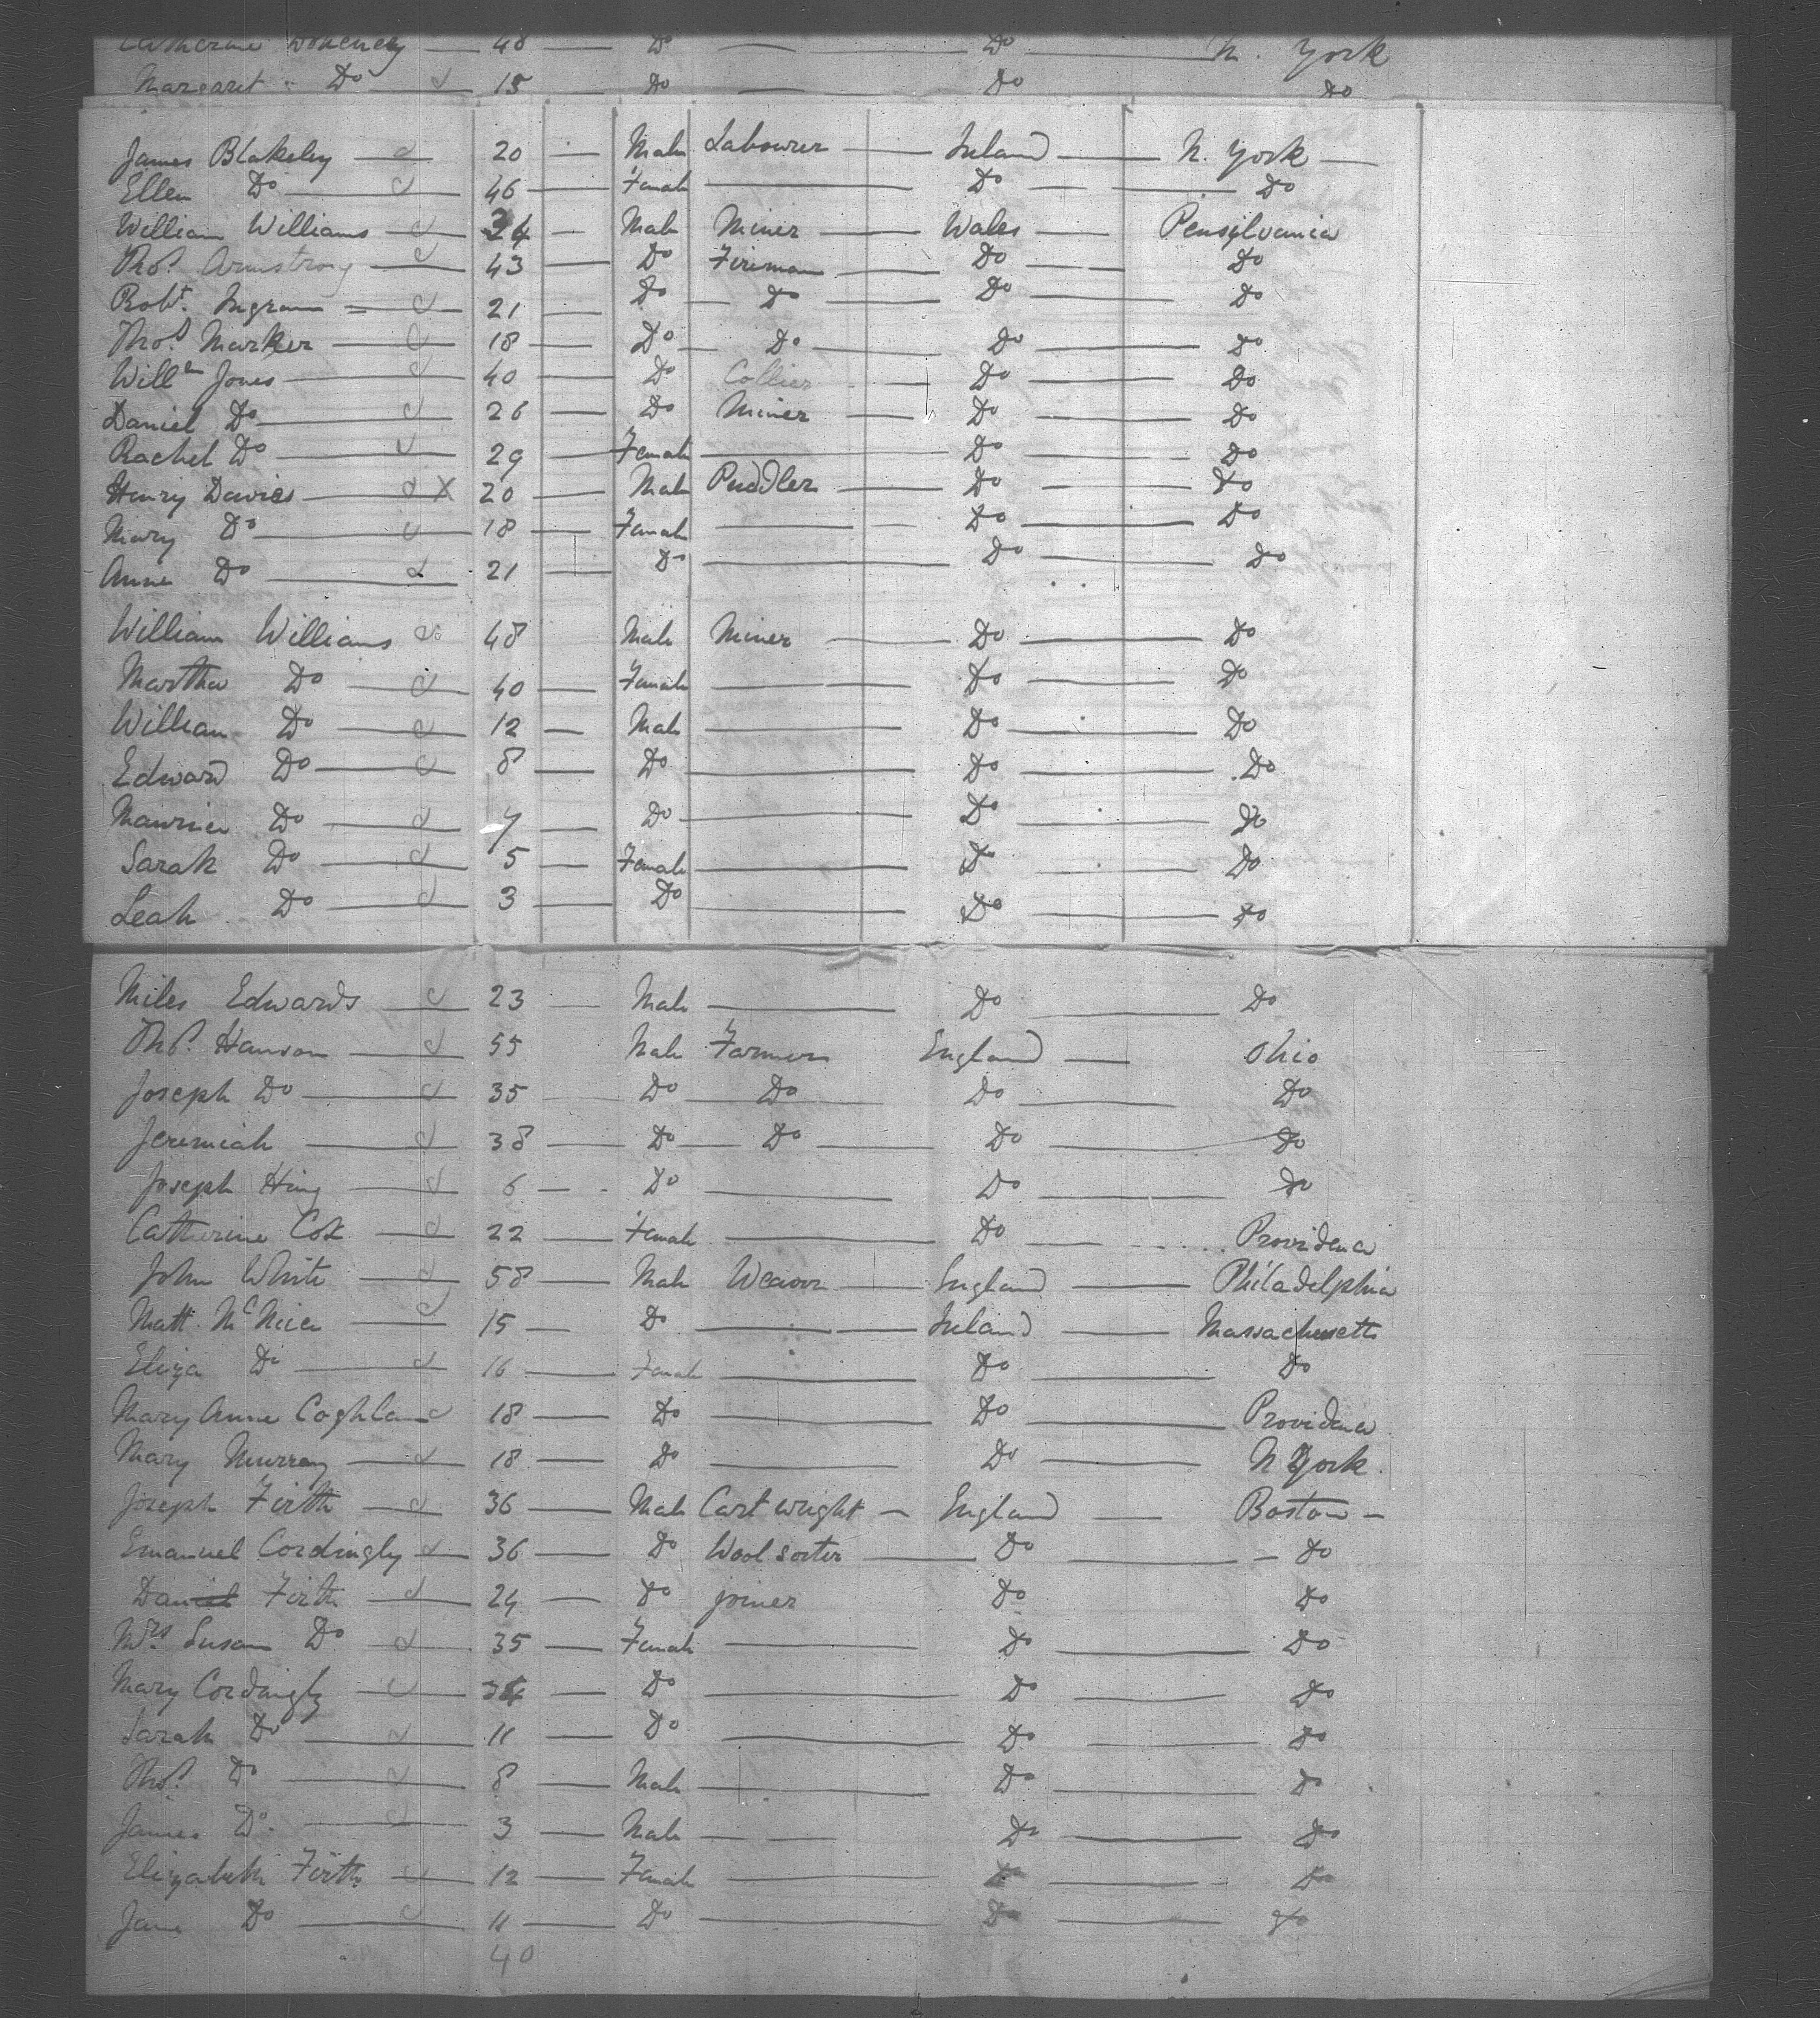 Catherine 48 Do Do N. York
Margaret Do 15 Do Do Do
James Blakeley 20 Male Labourer Ireland N. York
Ellen Do 46 Female Do Do
William Williams 24 Male Miner Wales Pensylvania
Thos. Armstrong 43 Do Fireman Do Do
Robt. Ingram 21 Do Do Do Do
Thos. Marker 18 Do Do Do Do
Willm Jones 40 Do Collier Do Do
Daniel Do 26 Do Miner Do Do
Rachel Do 29 Female Do Do
Henry Davies X 20 Male Puddler Do Do
Mary Do 18 Female Do Do
Anne Do 21 Do Do Do
William Williams 48 Male Miner Do Do
Martha Do 40 Female Do Do
William Do 12 Male Do Do
Edward Do 8 Do Do Do
Maurice Do 7 Do Do Do
Sarah Do 5 Female Do Do
Leah Do 3 Do Do Do
Miles Edwards 23 Male Do Do
Thos. Hanson 55 Male Farmer England Ohio
Joseph Do 35 Do Do Do Do
Jeremiah 38 Do Do Do Do
Joseph 6 Do Do Do
Catherine Cox 22 Female Do Providence
John White 58 Male Weaver England Philadelphia
Matt. McNice 15 Do Ireland Massachusetts
Eliza Do 16 Female Do Do
Mary Anne Coghlan 18 Do Do Providence
Mary Murray 18 Do Do N York
Joseph Firth 36 Male Cartwright England Boston
Emanuel Cordingly 36 Do Wool sorter Do Do
Daniel Firth 24 Do joiner Do Do
Mrs. Susan Do 35 Female Do Do
Mary Cordingly Do Do Do
Sarah Do 11 Do Do Do
Thos. Do 8 Male Do Do
James Do 3 Male Do Do
Elizabeth Firth 12 Female Do Do
Jane Do 11 Do Do Do
40